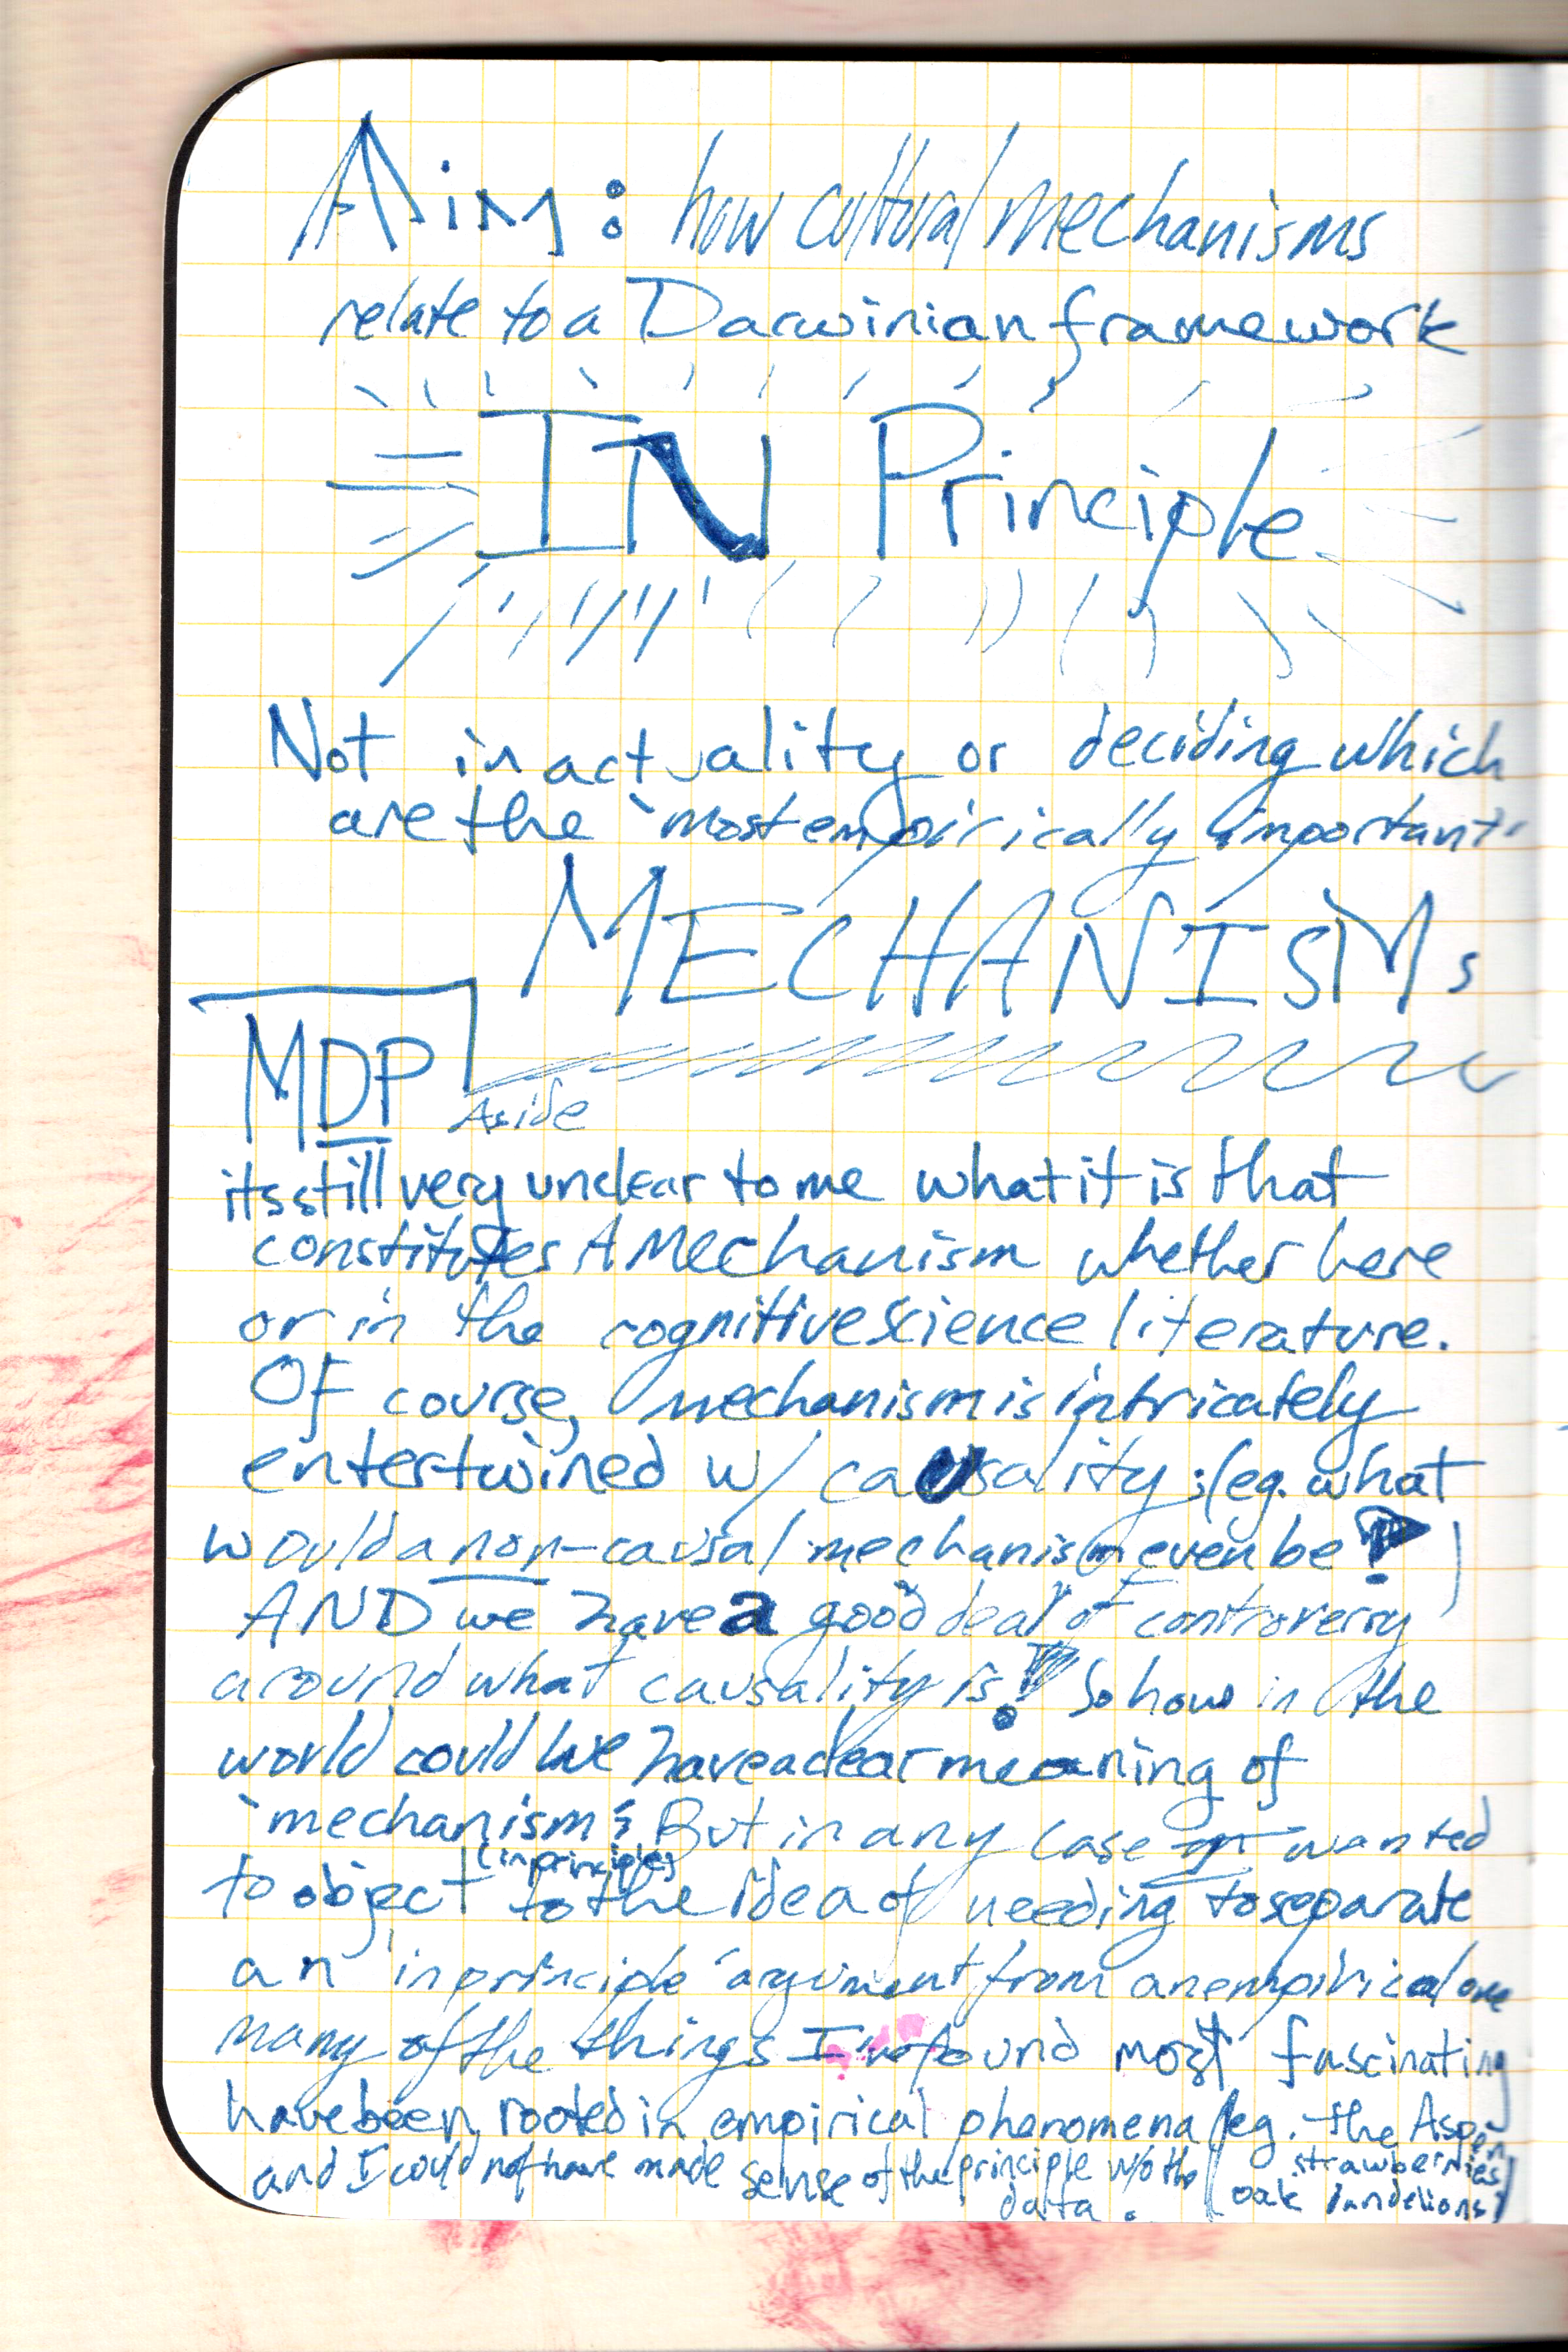 Aim: how cultural mechanisms
relate to a Darwinian framework
IN Principle
Not in actuality or deciding which
are the `most empirically important'
MECHANISMs
MDP
Aside
its still very unclear to me what it is that
constitutes A Mechanism whether here
or in the cognitive science literature.
Of course, mechanism is intricately
entertwined w/ causality; (eg. what
would a non-causal mechanism even be?)
AND we have a good deal of controversy
around what causality is! So how in the
world could we have a clear meaning of
`mechanism'? But in any case wanted
(in principle)
to object to the idea of needing to separate
an 'in principle' argument from an empirical one
many of the things I found most fascinating
have been rooted in empirical phenomena (eg. the Aspen
strawberries
oak dandelions)
and I could not have made sense of the principle w/o the
data.